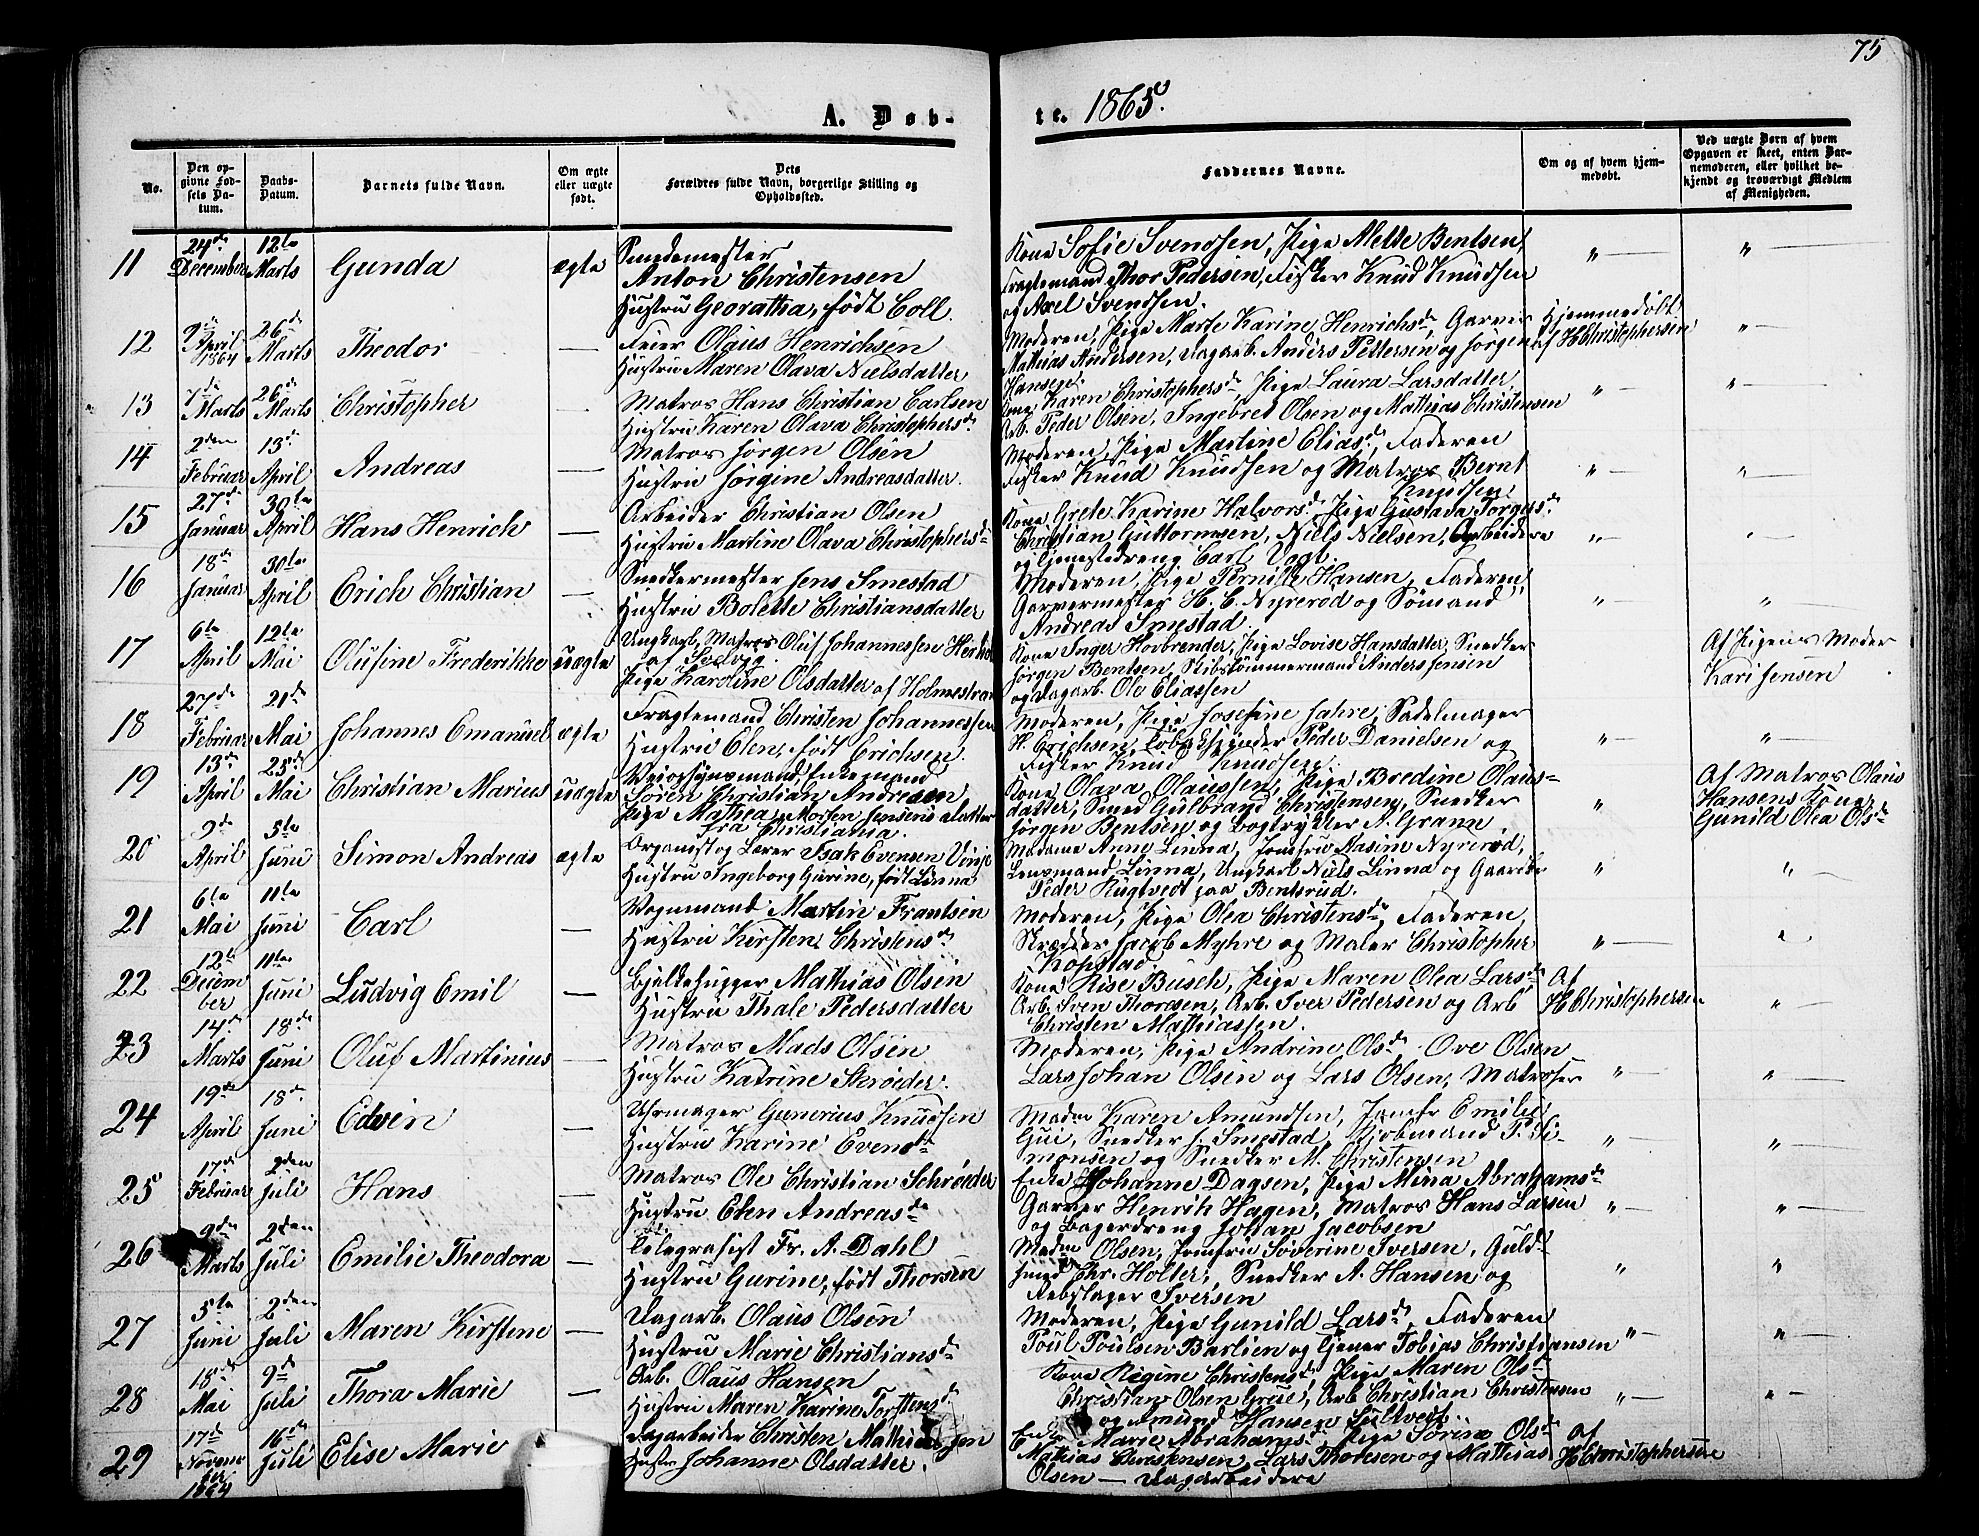 75
A. Døb-
te. 1865.
No.
Den op-
givne Fød-
sels Da-
tum.
Daabs-
Datum.
Barnets fulde Navn.
Om ægte
eller uægte
født.
Dets
Forældres fulde Navn, borgerlige Stilling og
Opholdssted.
Faddernes Navne.
Om og af hvem hjem-
medøbt.
Ved uægte Børn af hvem
Opgaven er skeet, enten Bar-
nemoderen, eller hvilket be-
kjendt og troværdigt Medlem
af Menigheden.
11
24de
December
12te
Marts
Gunda
ægte
Smedemester
Anton Christensen
Hustru Georatha, født Coll.
Kone Sofie Svendsen, Pige Mette Bentsen
Fragtemand Thor Pedersen, Fisker Knud Knudsen
og Axel Svendsen.
" —
" —
12
9de
April
1864
26de
Marts
Theodor
—
Feier Olaus Henrichsen
Hustru Maren Olava Nielsdatter
Moderen, Pige Marte Karine Henrichsd., Garver
Mathias Andersen, Dagarb. Anders Pettersen og Jørgen
Hansen.
Hjemmedøbt
af H Christophersen
" —
13
7de
Marts
26de
Marts
Christopher
—
Matros Hans Christian Carlsen
Hustru Karen Olava Christophersd.
Kone Karen Christophersd. Pige Laura Larsdatter,
Arb. Peder Olsen, Ingebret Olsen og Mathias Christensen
" —
" —
14
2den
Februar
13de
April
Andreas
—
Matros Jørgen Olsen
Hustru Jørgine Andreasdatter.
Moderen, Pige Martine Eliasd., Faderen
Fisker Knud Knudsen og Matros Bernt
Knudsen
" —
"
15
27de
Januar
30te
April
Hans Henrich
—
Arbeider Christian Olsen
Hustru Martine Olava Christophersd.
Kone Grete Karine Halvorsd. Pige Gustava Torgersd.
Christian Guttormsen, Niels Nielsen, Arbeidere
og Tjenestedreng Carl Vogt.
" —
" —
16
18de
Januar
30te
April
Erich Christian
—
Snedkermester Jens Smestad
Hustru Bolette Christiansdatter
Moderen, Pige Pernille Hansen, Faderen
Garvermester H. C. Nyrerød og Sømand
Andreas Smestad.
" —
" —
17
6te
April
12te
Mai
Olusine Frederikke
uægte
Ungkarl, Matros Oluf Johannessen
af Selvig
Pige Karoline Olsdatter af Holmestrand
Kone Inger Hovbrender, Pige Lovise Hansdatter, Snedker
Jørgen Bentsen, Skibstømmermand Anders Jensen
og Dagarb. Ole Eliassen
Af Pigens Moder
Kari Jensen
18
27de
Februar
21de
Mai
Johannes Emanuel
ægte
Fragtemand Christen Johannessen
Hustru Elen, født Erichsen.
Moderen, Pige Josefine Jahre, Sadelmager
H. Erichsen, Peder Danielsen og
Fisker Knud Knudsen.
" —
" —
19
13de
April
25de
Mai
Christian Marius
uægte
Enkemand
Søren Christian Andresen
Pige Mathea Morten Jenseris datter
fra Christiania.
Kone Olava Olaussen, Pige Bredine Olaus-
datter, Smed Gulbrand Christensen, Snedker
Jørgen Bentsen og Bogtrykker A. Grann.
"
Af Matros Olaus
Hansens Kone
Gunild Olea Olsd.
20
9de
April
5te
Juni
Simon Andreas
ægte
Organist og Lærer Isak Evensen Vinje
Hustru Ingeborg Gurine, født Linna
Madame Anne Linna, Jomfru Aasine Nyrerød,
Lensmand Linna, Ungkarl Niels Linna og Gaardbr.
Peder Rugtvedt paa Bentsrud.
"
" —
21
6te
Mai
11te
Juni
Carl
—
Vognmand Martin Frantsen
Hustru Kirsten Christensd.
Moderen, Pige Olea Christensd., Faderen,
Skrædder Jacob Myhre og Maler Christopher
Kopstad.
" —
"
22
12te
Decem
ber
11te
Juni
Ludvig Emil
—
Bjelkehugger Mathias Olsen
Hustru Thale Pedersdatter
Kone Rise Busch, Pige Maren Olea Larsd.
Arb. Sven Thoresen, Arb. Iver Pedersen og Arb
Christen Mathiassen.
Af
H Christophersen
" —
23
14de
Marts
18de
Juni
Oluf Martinius
—
Matros Mads Olsen
Hustru Katrine Skrøder.
Moderen, Pige Andrine Olsd. Ove Olsen
Lars Johan Olsen og Lars Olsen, Matroser
" —
" —
24
19de
April
18de
Juni
Edvin
—
Uhrmager Gunerius Knudsen
Hustru Karine Evensd.
Madm Karen Amundsen, Jomfr Emilie
Gui, Snedker J. Smestad, Kjøbmand P. Si-
monsen og Snedker M. Christensen
" —
" —
25
17de
Februar
2den
Juli
Hans
—
Matros Ole Christian Schrøder
Hustru Elen Andreasd.
Enke Johanne Dagsen, Pige Mina Abrahamsd.
Garver Henrik Hagen, Matros Hans Larsen
og Bagerdreng Johan Jacobsen
" —
" —
26
9de
Marts
2den
Juli
Emilie Theodora
—
Telegrafist Fr. A. Dahl
Hustru Gurine, født Thorsen
Madm Olsen, Jomfru Severine Iversen, Guld-
smed Chr. Holter, Snedker A. Hansen og
Rebslager Iversen
"
"
27
5te
Juni
2den
Juli
Maren Kirstene
—
Dagarb. Olaus Olsen
Hustru Marie Christiansd.
Moderen, Pige Gunild Larsd., Faderen
Poul Poulsen Barlien og Tjener Tobias Christiansen
" —
" —
28
18de
Mai
9de
Juli
Thora Marie
—
Arb. Olaus Hansen
Hustru Maren Karine Torstensd.
Kone Regine Christensd., Pige Maren Olsd.
Christian Olsen Grue, Arb Christian Christensen
og Amund Hansen Sultvedt.
" —
" —
29
17de
Novem
ber
1864
16de
Juli
Elise Marie
Dagarbeider Christen Mathiassen
Hustr Johanne Olsdatter.
Enke Marie Abrahamsd. Pige Sørine Olsd.
Mathias Christensen, Lars Thoresen og Mathias
Olsen — Dagarbeidere
Af
H Christophersen